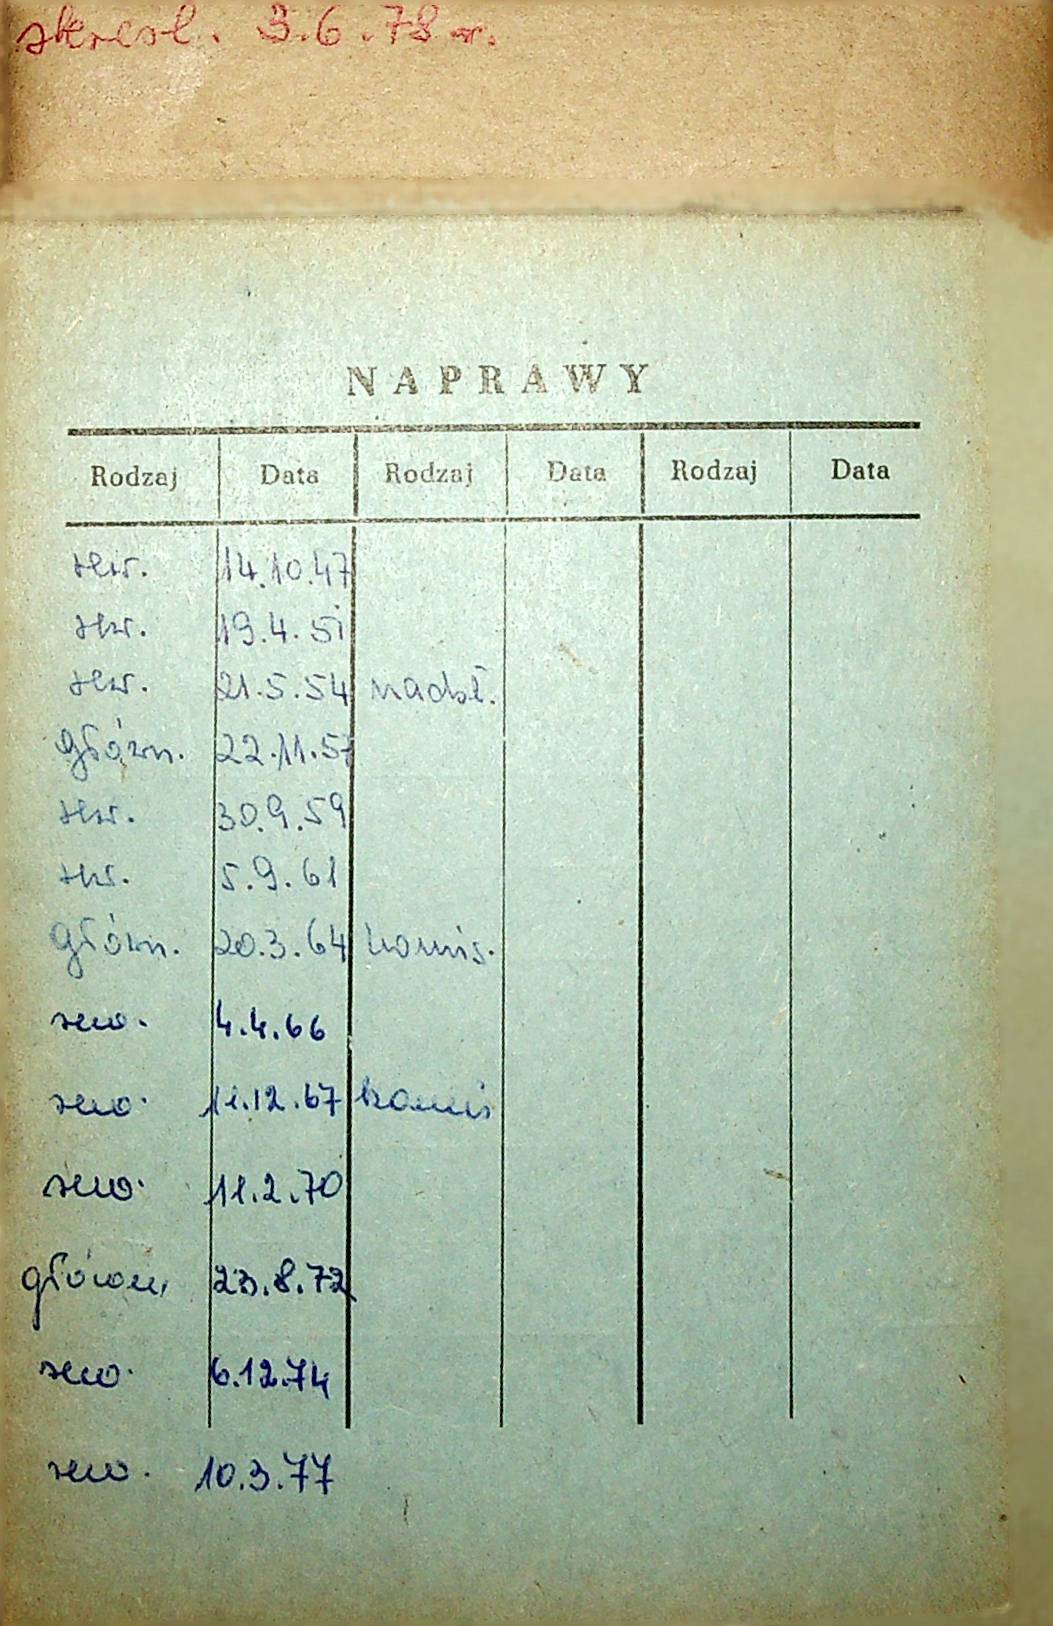 skreśl. 3.6.78 r.
NAPRAWY
Rodzaj Data Rodzaj Data Rodzaj Data
rew. 14.10.47
rew. 19.4.51
rew. 21.5.54 nadzl.
główn. 22.11.57
rew. 30.9.59
rew. 5.9.61
główn. 20.3.64 komis.
rew. 4.4.66
rew. 11.12.67 komis
rew. 11.2.70
główn. 23.8.72
rew. 6.12.74
rew. 10.3.77